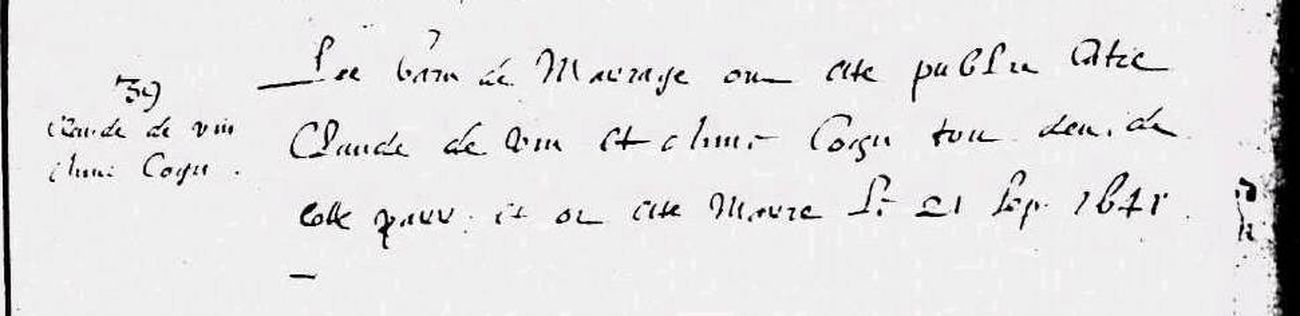 39
Claude de vin
Cogu.
Les bans de Mariage on este publie entre
Claude de vin et Cogu tou deu de
cette parr. et on este Marie le 21 Sep. 1641